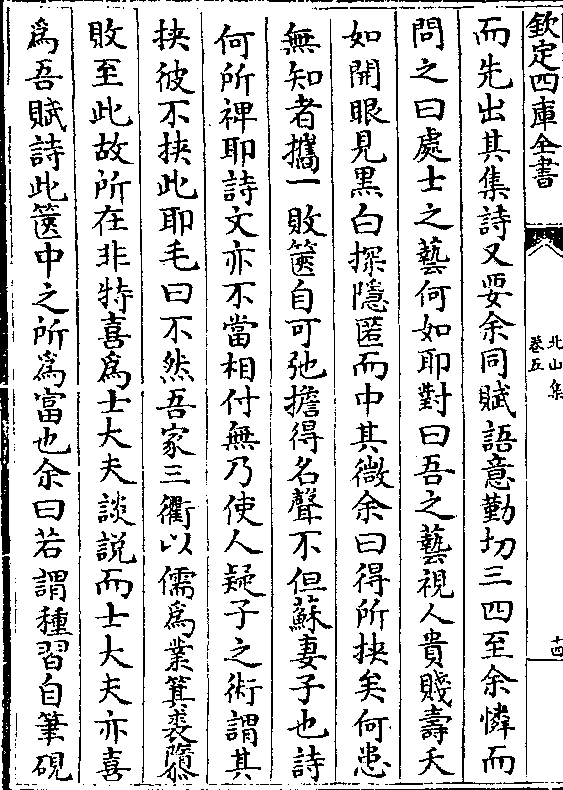 欽定四庫全書
北山集
卷五
十四
而先出其集詩又要余同賦語意勤切三四至余憐而
問之曰處士之藝何如耶對曰吾之藝視人貴賤壽夭
如開眼見黒白探隱匿而中其微余曰得所挾矣何患
無知者攜一敗篋自可弛擔得名聲不但蘇妻子也詩
何所裨耶詩文亦不當相付無乃使人疑子之術謂其
挾彼不挾此耶毛曰不然吾家三衢以儒爲業箕裘隳
敗至此故所在非特喜爲士大夫談説而士大夫亦喜
爲吾賦詩此篋中之所爲富也余曰若謂種習自筆硯